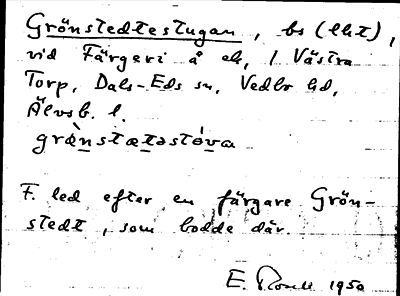 Grönstedtestugan, bs (lht),
vid Färgeri å eh, l Västra
Torp, Dals-Eds sn, Vedbo hd,
Älvsb. l.
grœ̀nstætəstóva
F. led efter en färgare Grön-
stedt, som bodde där.
E. 1950